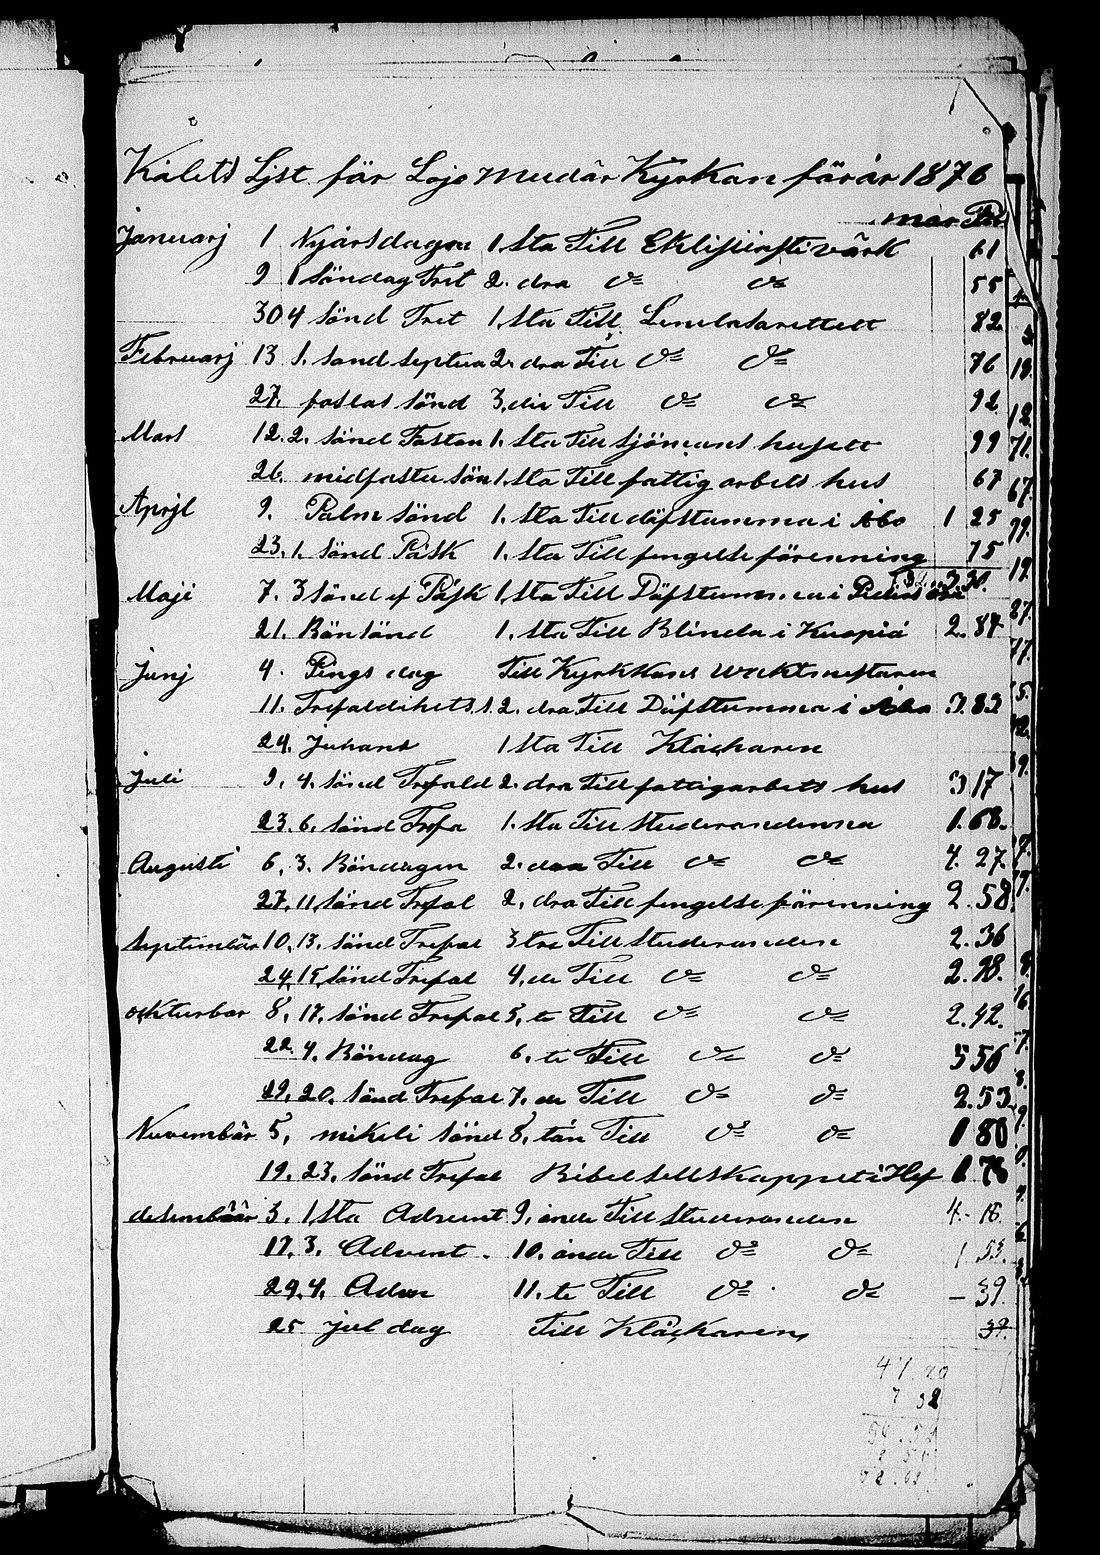 Kålets List får Lojo Mudår Kyrkan får år 1876
mar Pi
Januarj 1 Nyårsdagen 1,sta Till 61
9 1 Söndag Tret 2. dra d= d= 55
30 4 Sönd Tret 1,sta Till 82
Februarj 13 1. sönd septua 2. dra Till d= d= 76
27. fastlas sönd 3, Till d= d= 92
Mars 12. 2. sönd Fastan 1. sta Till sjömans husett 99
26. midfasta sön 1,sta Till fattig arbets hus 67
Aprjl 9. Palm sönd 1. sta Till döfstumma i Åbo 1 25
23. 1. sönd Påsk 1. sta Till fengelse förenning 75
Maji 7. 3 sönd ef Påsk 1,sta Till Döfstumma i 3 30.
21. Bönsönd 1. sta Till Blinda i Kuopiå 2. 84
Junj 4. Pings dag Till Kyrkkans waktmestaren
11. Trefaldihets. 1. 2. dra Till Döfstumma i Åbo 3. 83
24. Juhans 1 sta Till Klåckaren
Juli 9. 4. sönd Trefald 2. dra Till fattigarbets hus 3 17
23. 6. sönd Trefa 1. sta Till studerandenna 1. 68.
Augusti 6, 3. Böndagen 2. dra Till d= d= 4. 27.
27. 11, sönd Trefal 2, dra Till fengelse förenning 2. 58
Septembär 10, 13. sönd Trefal 3 Till studeranden 2. 36
24, 15, sönd Trefal 4, de Till d= d= 2. 98.
okturbar 8, 17, sönd Trefal 5, te Till d= d= 2. 42.
22. 4. Böndag 6. te Till d= d= 5 56
29, 20. sönd Trefal 7. de Till d= d= 2. 53
Nuvembär 5, mikeli sönd 8, tån Till d= d= 1 80
19. 23. sönd Trefal Bibelsellskappet i Hlf 1. 76
desembäär 3. 1,sta Advent 9. ånde Till studeranden 4.- 16.
17, 3. Advent. 10. ånde Till d= d= 1 53.
24, 4. Adve 11. te Till d= d= - 39.
25 jul dag Till Klåckaren, 39.
47. 20
7 32